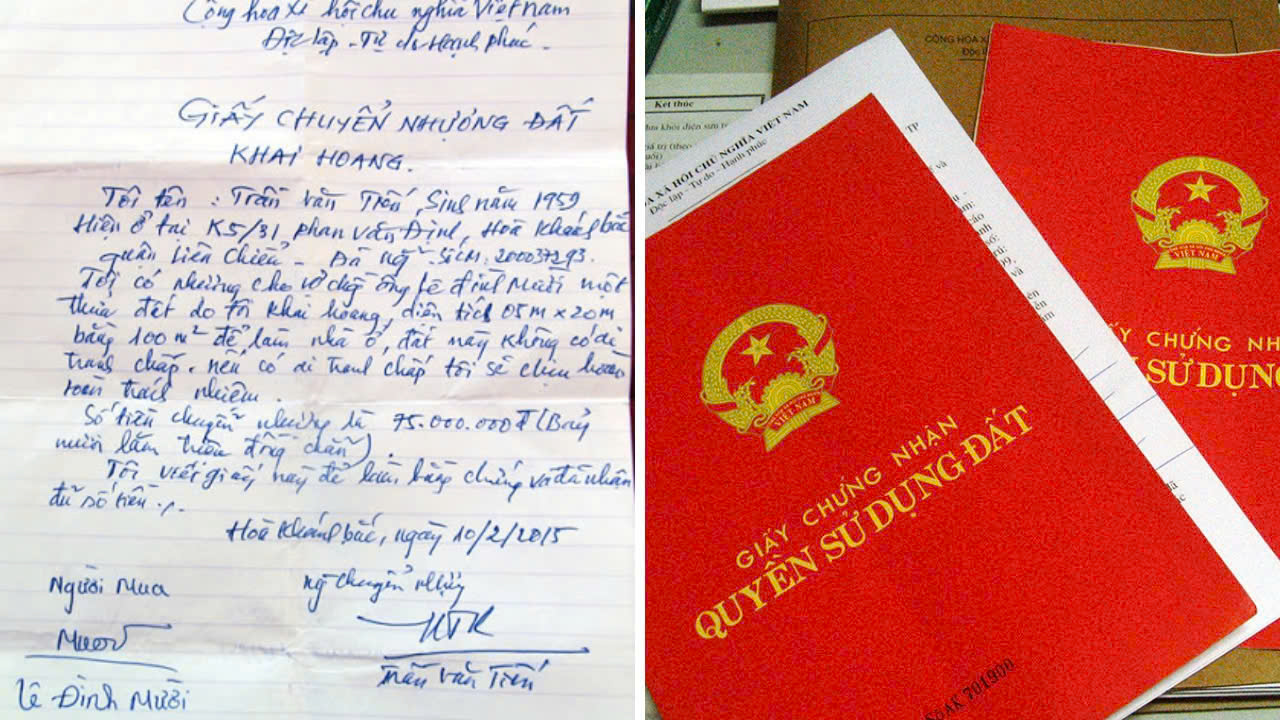 Cộng hòa xã hội chủ nghĩa Việt Nam
Độc lập - Tự do Hạnh phúc.
GIẤY CHUYỂN NHƯỢNG ĐẤT
KHAI HOANG.
Tôi tên : Trần Văn Tiến, Sinh năm 1959
Hiện ở tại K5/31 phan Văn Định, Hoà Khánh bắc
quận Liên Chiểu - Đà Số CM: 200037293.
Tôi có nhường cho vợ chồng ông Lê đình Mười một
thửa đất do tôi khai hoang, diện tích 05m x 20m
bằng 100m² để làm nhà ở, đất này không có ai
tranh chấp. nếu có ai tranh chấp tôi sẽ chịu hoàn
toàn trách nhiệm.
Số tiền chuyển nhượng là 75.000.000đ (Bảy
mươi lăm triệu đồng chẵn).
Tôi viết giấy này để làm bằng chứng và đã nhận
đủ số tiền ./.
Hoà Khánh bắc, ngày 10/2/2015
Người Mua
ng chuyển nhượng
Mười
Trần Văn Tiến
Lê Đình Mười
CỘNG HÒA X
Độc l
Kết thúc
A XÃ HỘI CHỦ NGHĨA VIỆT NAM
Độc lập - Tự do - Hạnh phúc
TP
VIỆT NAM
GIẤY CHỨNG NHẬN
QUYỀN SỬ DỤNG ĐẤT
Số AK 701900
VIỆT NAM
ẤY CHỨNG NH
SỬ DỤNG